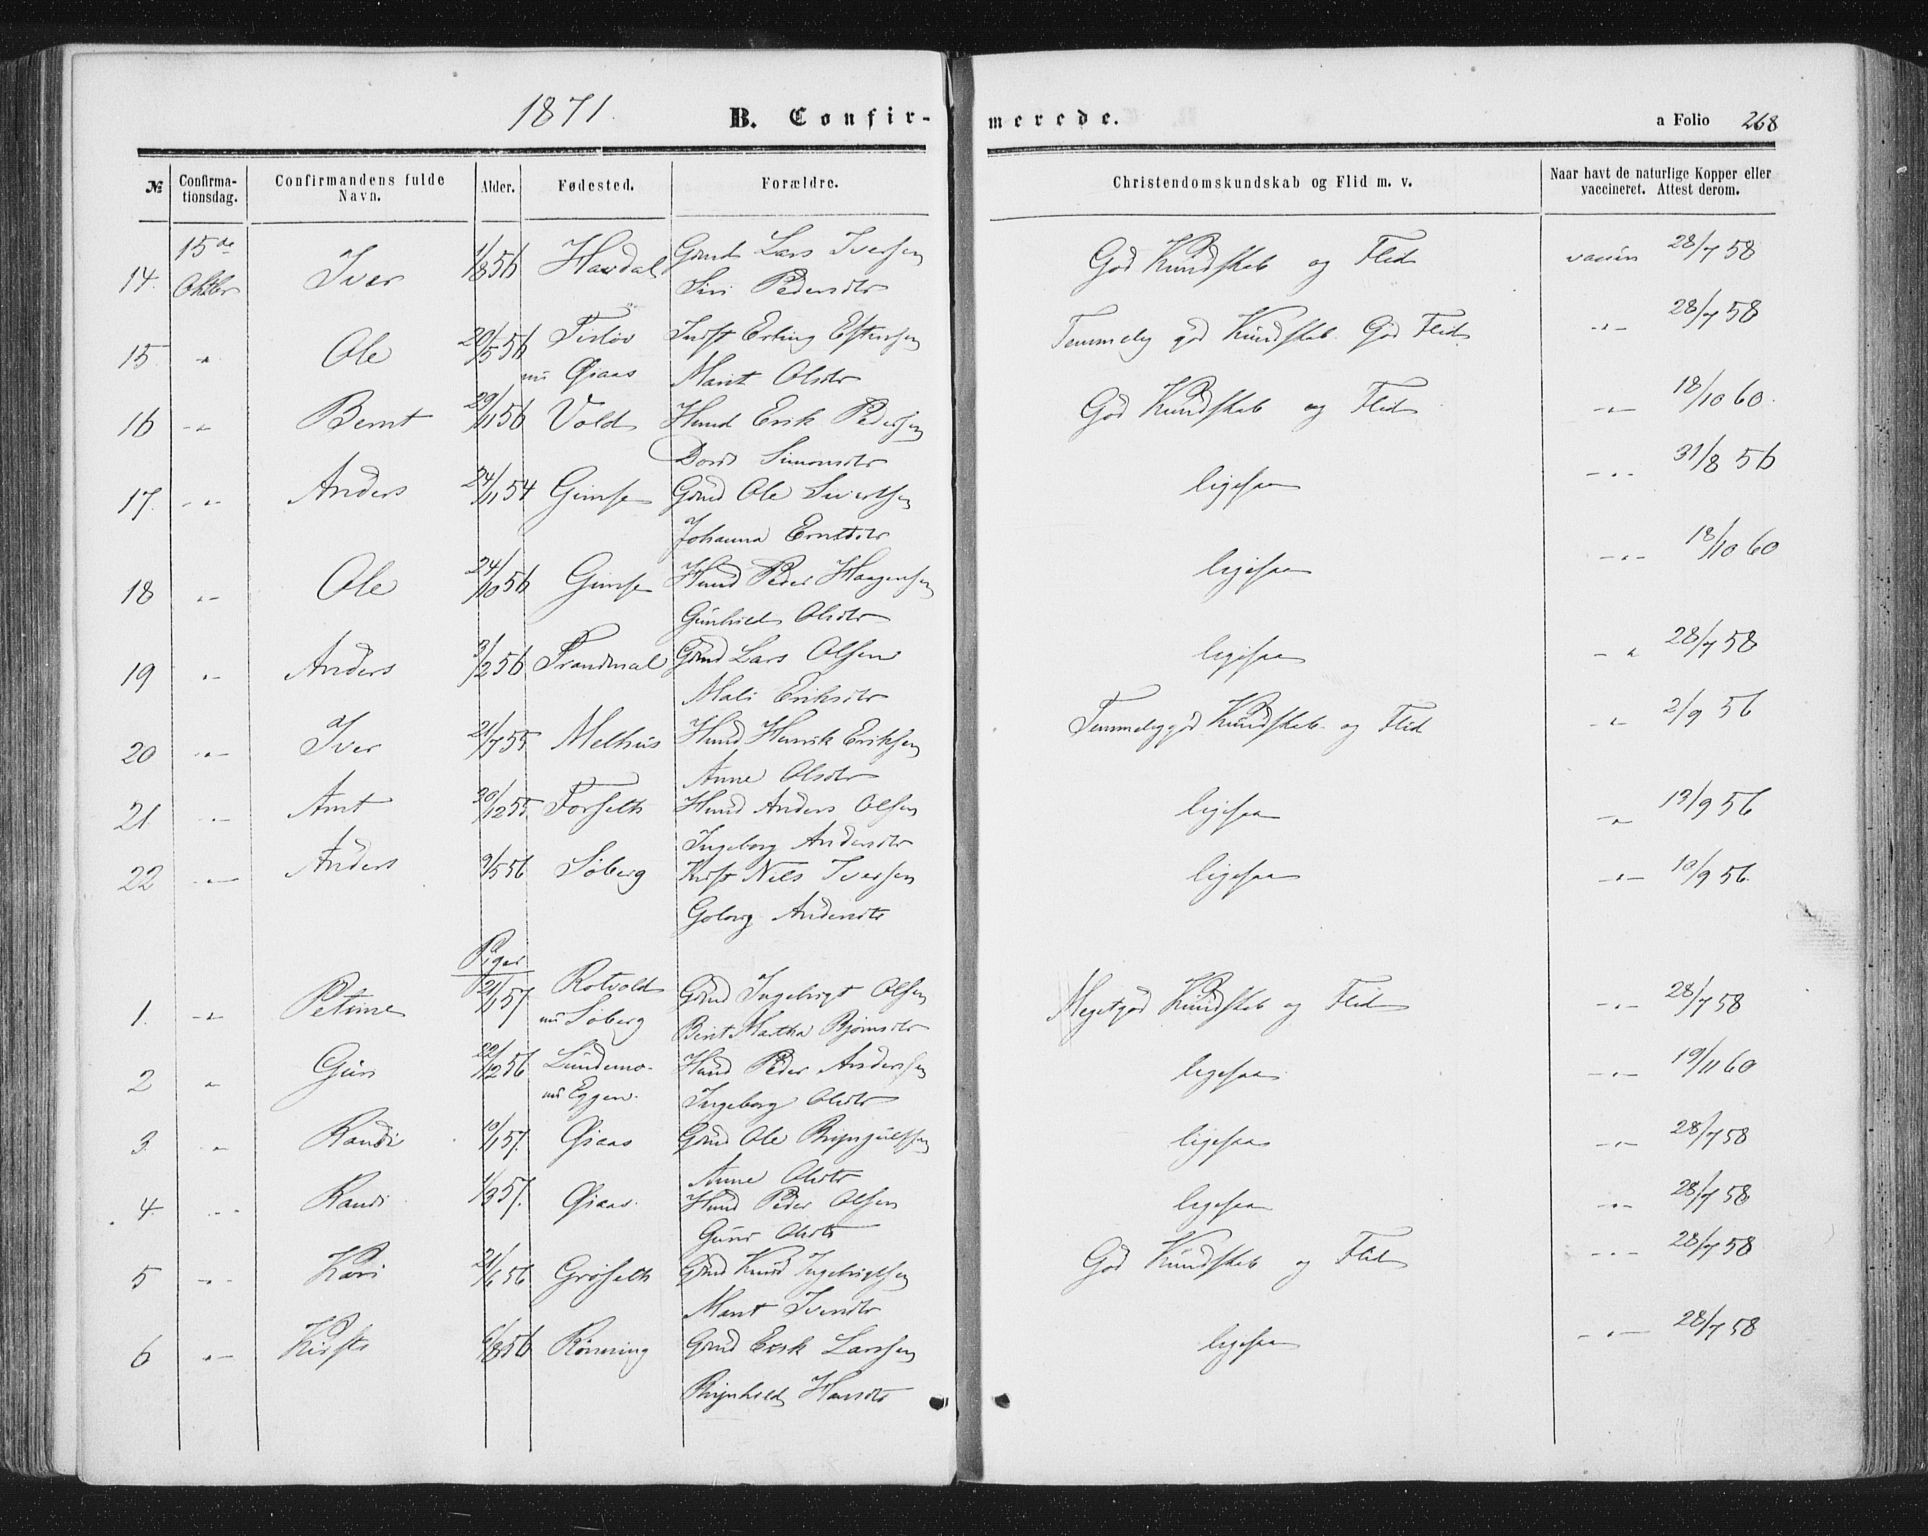 1871. B. Confirmerede. a Folio 268
№ Confirmationsdag. Confirmandens fulde Navn. Alder. Fødested. Forældre. Christendomskundskab og Flid m. v. Naar havt de naturlige Kopper eller vaccineret. Attest derom.
14. 15de Oktbr Iver 1/8 56 Havdal Gmd Lars Iversen God Kundskab og Flid vaccin 28/7 58
Siri Pedersdtr
15. " Ole 20/5 56 Indst Erling Estensen Temmelig god Kundskab. God Flid -"- 28/7 58
nu Øiaas Marit Olsdtr
16 -"- Bernt 29/11 56 Vold Hmd Erik Pedersen God Kundskab og Flid -"- 18/10 60.
Dord Simonsdtr
17. -"- Anders 24/11 54 Gimse Gmd Ole Sivertsen ligesaa -"- 31/8 56
Johanna Erntsdtr
18 -"- Ole 24/10 56 Gimse Hmd Peder Haagensen ligesaa -"- 18/10 60
Gunhild Olsdtr
19 -"- Anders 3/2 56 Trandmal Gmd Lars Olsen ligesaa -"- 28/7 58
Mali Eriksdtr
20 -"- Iver 21/7 55 Melhus Hmd Henrik Eriksen Temmelig god Kundskab og Flid -"- 2/9 56
Anne Olsdtr
21 -"- Arnt 30/12 55 Forseth Hmd Anders Olsen ligesaa -"- 13/9 56
Ingeborg Andersdtr
22 -"- Anders 9/5 56 Søberg Nils Iversen ligesaa -"- 10/9 56.
Golaug Andersdtr
Piger
1. -"- Petrine 21/1 57 Rotvold Gmd Ingebrigt Olsen Meget god Kundskab og Flid -"- 28/7 58
nu Søberg Berit Martha Bjørnsdtr
2 " Guri 22/12 56 Lundemo Hmd Peder Andersen ligesaa -"- 19/11 60
nu Eggen. Ingeborg Olsdtr
3. -"- Randi 10/1 57. Øiaas Gmd Ole ligesaa -"- 28/7 58
Anne Olsdtr
4. -"- Randi 1/3 57. Øiaas Hmd Peder Olsen ligesaa -"- 28/7 58
Guru Olsdtr
5 -"- Kari 21/6 56 Grøseth Gmd Knud Ingebrigtsen God Kundskab og Flid -"- 28/7 58
Marit Iversdtr
6 -"- Kirsti 6/8 56 Rønning Gmd Erik Larssen ligesaa -"- 28/7 58
Hansdtr